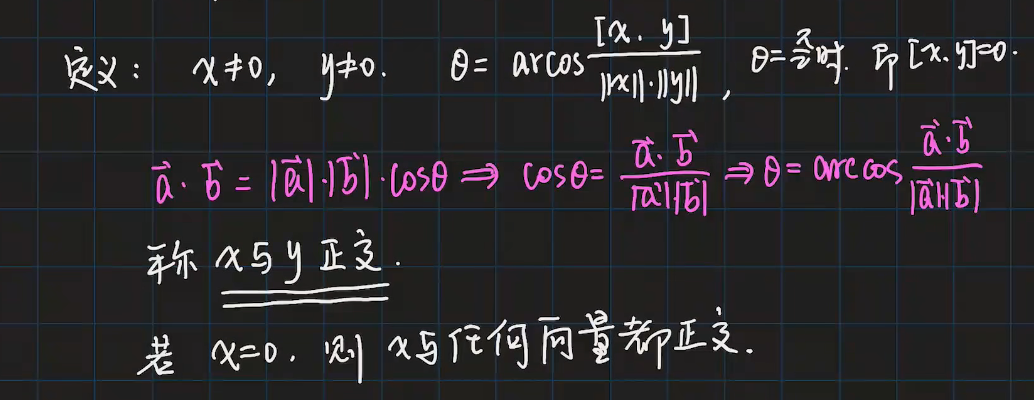 定义: x≠0, y≠0. θ= arcos [x, y] / ||x||·||y||, θ=π/2时. 即 [x, y]=0.
a⃗·b⃗ = |a⃗|·|b⃗|·cosθ ⇒ cosθ= a⃗·b⃗ / |a⃗||b⃗| ⇒ θ= arccos a⃗·b⃗ / |a⃗||b⃗|
称 x与y 正交.
若 x=0. 则 x与任何向量都正交.